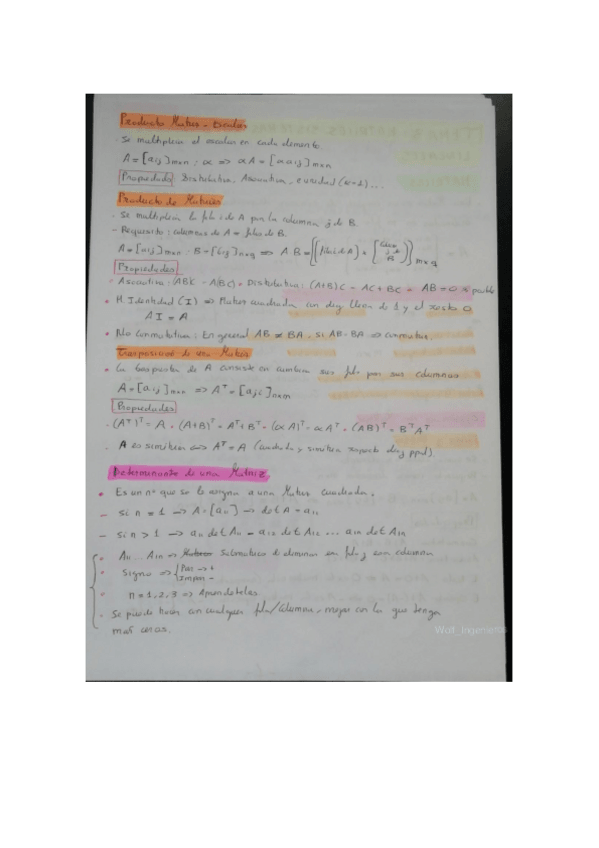 Producto Matriz - Escalar
- Se multiplica el escalar en cada elemento.
A = [aij]mxn ; α => αA = [α aij]mxn
Propiedades: Distributiva, Asociativa, unidad (α=1)...
Producto de Matrices
- Se multiplica la fila i de A por la columna j de B.
- Requisito: columnas de A = filas de B.
A = [aij]mxn · B = [bij]nxq => A·B = [(fila i de A) · [Colum j de B]]mxq
Propiedades
· Asociativa: (AB)C = A(BC) • Distributiva: (A+B)C = AC + BC - AB = 0 es posible
• M. Identidad (I) => Matriz cuadrada con diag. llena de 1 y el resto 0
AI = A
• No conmutativa: En general AB ≠ BA, si AB=BA => conmutan.
Trasposición de una Matriz
• La traspuesta de A consiste en cambiar sus filas por sus columnas
A = [aij]mxn => Aᵀ = [aji]nxm
Propiedades
· (Aᵀ)ᵀ = A • (A+B)ᵀ = Aᵀ+Bᵀ • (αA)ᵀ = αAᵀ • (AB)ᵀ = BᵀAᵀ
. A es simétrica <=> Aᵀ = A (cuadrada y simétrica respecto diag ppal)
Determinante de una Matriz
• Es un nº que se le asigna a una Matriz cuadrada.
- si n = 1 -> A = [a11] -> det A = a11
- si n > 1 -> a11 det A11 - a12 det A12 ... a1n det A1n
• A11 ... A1n => Submatrices de eliminar esa fila y esa columna
• Signo => { Par -> +
Impar -
• n = 1, 2, 3 => Apréndetelas
• Se puede hacer con cualquier fila/columna, mejor con la que tenga
más ceros.